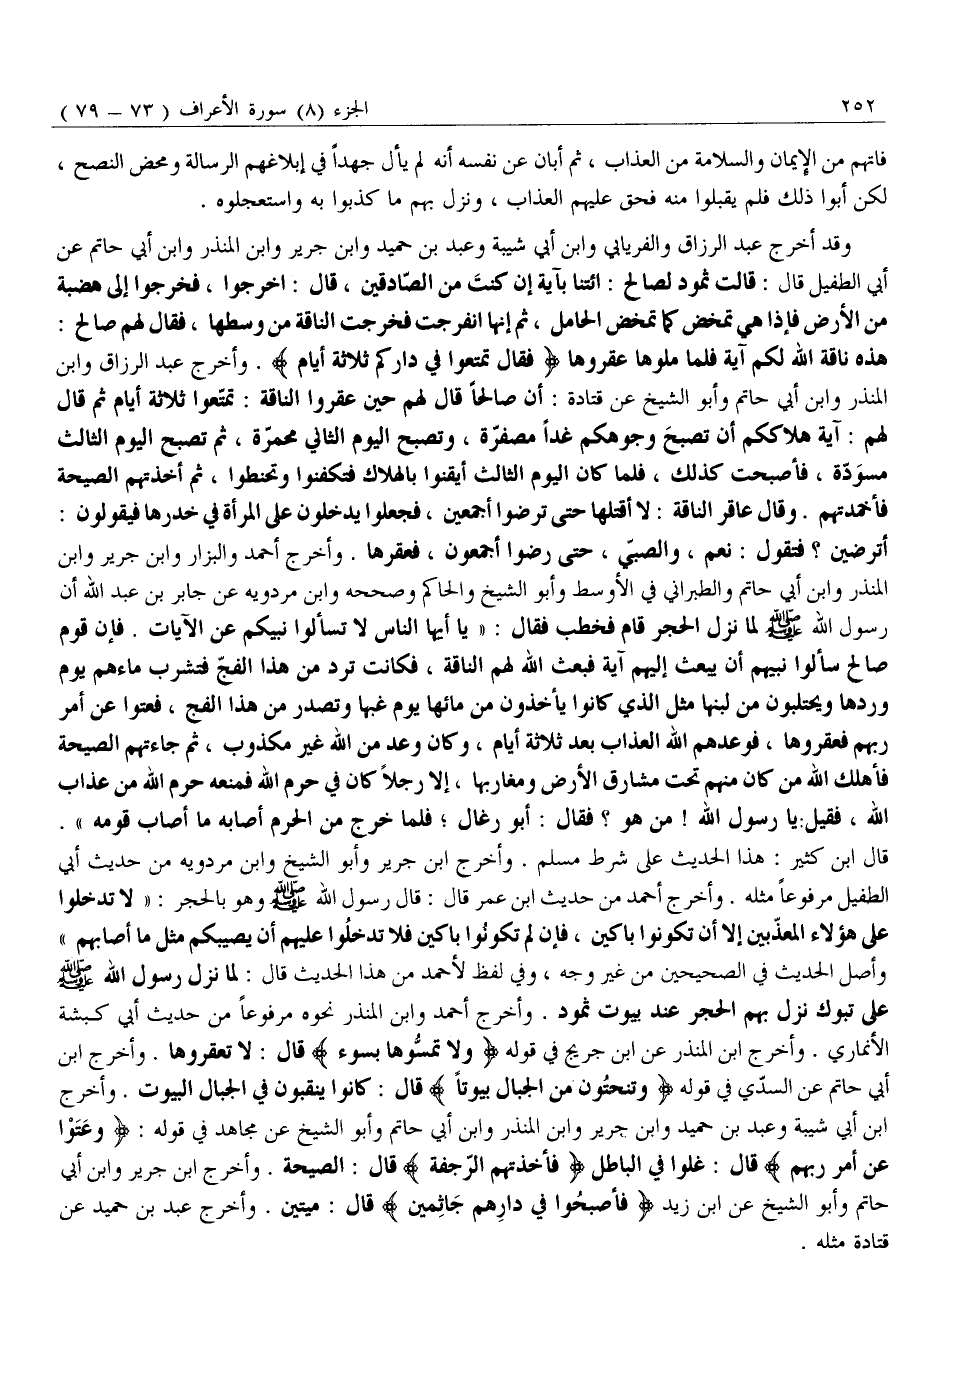 ٢٥٢ الجزء (٨) سورة الأعراف ( ٧٣ – ٧٩ )
فاتهم من الإيمان والسلامة من العذاب ، ثم أبان عن نفسه أنه لم يأل جهداً في إبلاغهم الرسالة ومحض النصح ،
لكن أبوا ذلك فلم يقبلوا منه فحق عليهم العذاب ، ونزل بهم ما كذبوا به واستعجلوه .
وقد أخرج عبد الرزاق والفريابي وابن أبي شيبة وعبد بن حميد وابن جرير وابن المنذر وابن أبي حاتم عن
أبي الطفيل قال : قالت ثمود لصالح : ائتنا بآية إن كنتَ من الصّادقين ، قال : اخرجوا ، فخرجوا إلى هضبة
من الأرض فإذا هي تمخض كما تمخض الحامل ، ثم إنها انفرجت فخرجت الناقة من وسطها ، فقال لهم صالح :
هذه ناقة الله لكم آية فلما ملوها عقروها ﴿ فقال تمتعوا في داركم ثلاثة أيام ﴾ . وأخرج عبد الرزاق وابن
المنذر وابن أبي حاتم وأبو الشيخ عن قتادة : أن صالحاً قال لهم حين عقروا الناقة : تمتّعوا ثلاثة أيام ثم قال
لهم : آية هلاككم أن تصبحَ وجوهكم غداً مصفرّة ، وتصبح اليوم الثاني محمرّة ، ثم تصبح اليوم الثالث
مسوَدّة ، فأصبحت كذلك ، فلما كان اليوم الثالث أيقنوا بالهلاك فتكفنوا وتحنطوا ، ثم أخذتهم الصيحة
فأخمدتهم . وقال عاقر الناقة : لا أقتلها حتى ترضوا أجمعين ، فجعلوا يدخلون على المرأة في خدرها فيقولون :
أترضين ؟ فتقول : نعم ، والصبيّ ، حتى رضوا أجمعون ، فعقرها . وأخرج أحمد والبزار وابن جرير وابن
المنذر وابن أبي حاتم والطبراني في الأوسط وأبو الشيخ والحاكم وصححه وابن مردويه عن جابر بن عبد الله أن
رسول الله ﷺ لما نزل الحجر قام فخطب فقال : « يا أيها الناس لا تسألوا نبيكم عن الآيات . فإن قوم
صالح سألوا نبيهم أن يبعث إليهم آية فبعث الله لهم الناقة ، فكانت ترد من هذا الفجّ فتشرب ماءهم يوم
وردها ويحتلبون من لبنها مثل الذي كانوا يأخذون من مائها يوم غبها وتصدر من هذا الفج ، فعتوا عن أمر
ربهم فعقروها ، فوعدهم الله العذاب بعد ثلاثة أيام ، وكان وعد من الله غير مكذوب ، ثم جاءتهم الصيحة
فأهلك الله من كان منهم تحت مشارق الأرض ومغاربها ، إلا رجلاً كان في حرم الله فمنعه حرم الله من عذاب
الله ، فقيل:يا رسول الله ! من هو ؟ فقال : أبو رغال ؛ فلما خرج من الحرم أصابه ما أصاب قومه » .
قال ابن كثير : هذا الحديث على شرط مسلم . وأخرج ابن جرير وأبو الشيخ وابن مردويه من حديث أبي
الطفيل مرفوعاً مثله . وأخرج أحمد من حديث ابن عمر قال : قال رسول الله ﷺ وهو بالحجر : « لا تدخلوا
على هؤلاء المعذّبين إلا أن تكونوا باكين ، فإن لم تكونُوا باكين فلا تدخلُوا عليهم أن يصيبكم مثل ما أصابهم »
وأصل الحديث في الصحيحين من غير وجه ، وفي لفظ لأحمد من هذا الحديث قال : لما نزل رسول الله ﷺ
على تبوك نزل بهم الحجر عند بيوت ثمود . وأخرج أحمد وابن المنذر نحوه مرفوعاً من حديث أبي كبشة
الأنماري . وأخرج ابن المنذر عن ابن جريج في قوله ﴿ ولا تمسُّوها بسوء ﴾ قال : لا تعقروها . وأخرج ابن
أبي حاتم عن السدّي في قوله ﴿ وتنحتُون من الجبال بيوتاً ﴾ قال : كانوا ينقبون في الجبال البيوت . وأخرج
ابن أبي شيبة وعبد بن حميد وابن جرير وابن المنذر وابن أبي حاتم وأبو الشيخ عن مجاهد في قوله : ﴿ وعَتَوْا
عن أمر ربهم ﴾ قال : غلوا في الباطل ﴿ فأخذتهم الرّجفة ﴾ قال : الصيحة . وأخرج ابن جرير وابن أبي
حاتم وأبو الشيخ عن ابن زيد ﴿ فأصبحُوا في دارِهم جَاثِمين ﴾ قال : ميتين . وأخرج عبد بن حميد عن
قتادة مثله .